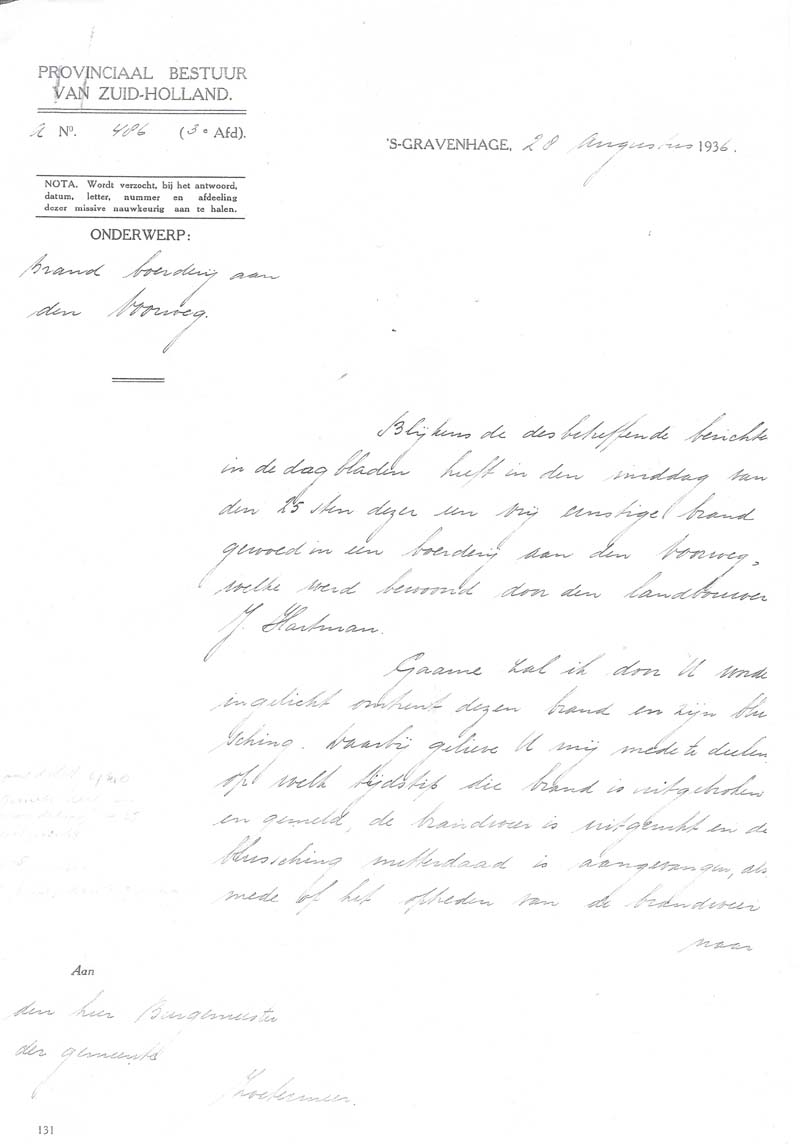 PROVINCIAAL BESTUUR
VAN ZUID-HOLLAND.
A Nº. 486 (3e Afd).
'S-GRAVENHAGE, 28 Augustus 1936.
NOTA. Wordt verzocht, bij het antwoord,
datum, letter, nummer en afdeeling
dezer missive nauwkeurig aan te halen.
ONDERWERP:
Brand boerderij aan
den Voorweg.
Blijkens de desbetreffende berichte
in de dagbladen heeft in den middag van
den 25sten dezer een vrij ernstige brand
gewoed in een boerderij aan den Voorweg,
welke werd bewoond door den landbouwer
J. Hartman.
Gaarne zal ik door U worde
ingelicht omtrent dezen brand en zijn blu
sching. Daarbij gelieve U mij mede te deelen
op welk tijdstip die brand is uitgebroken
en gemeld, de brandweer is uitgerukt en de
blussching metterdaad is aangevangen, als
mede of het optreden van de brandweer
naar
Aan
den heer Burgemeester
der gemeente
Zoetermeer.
131